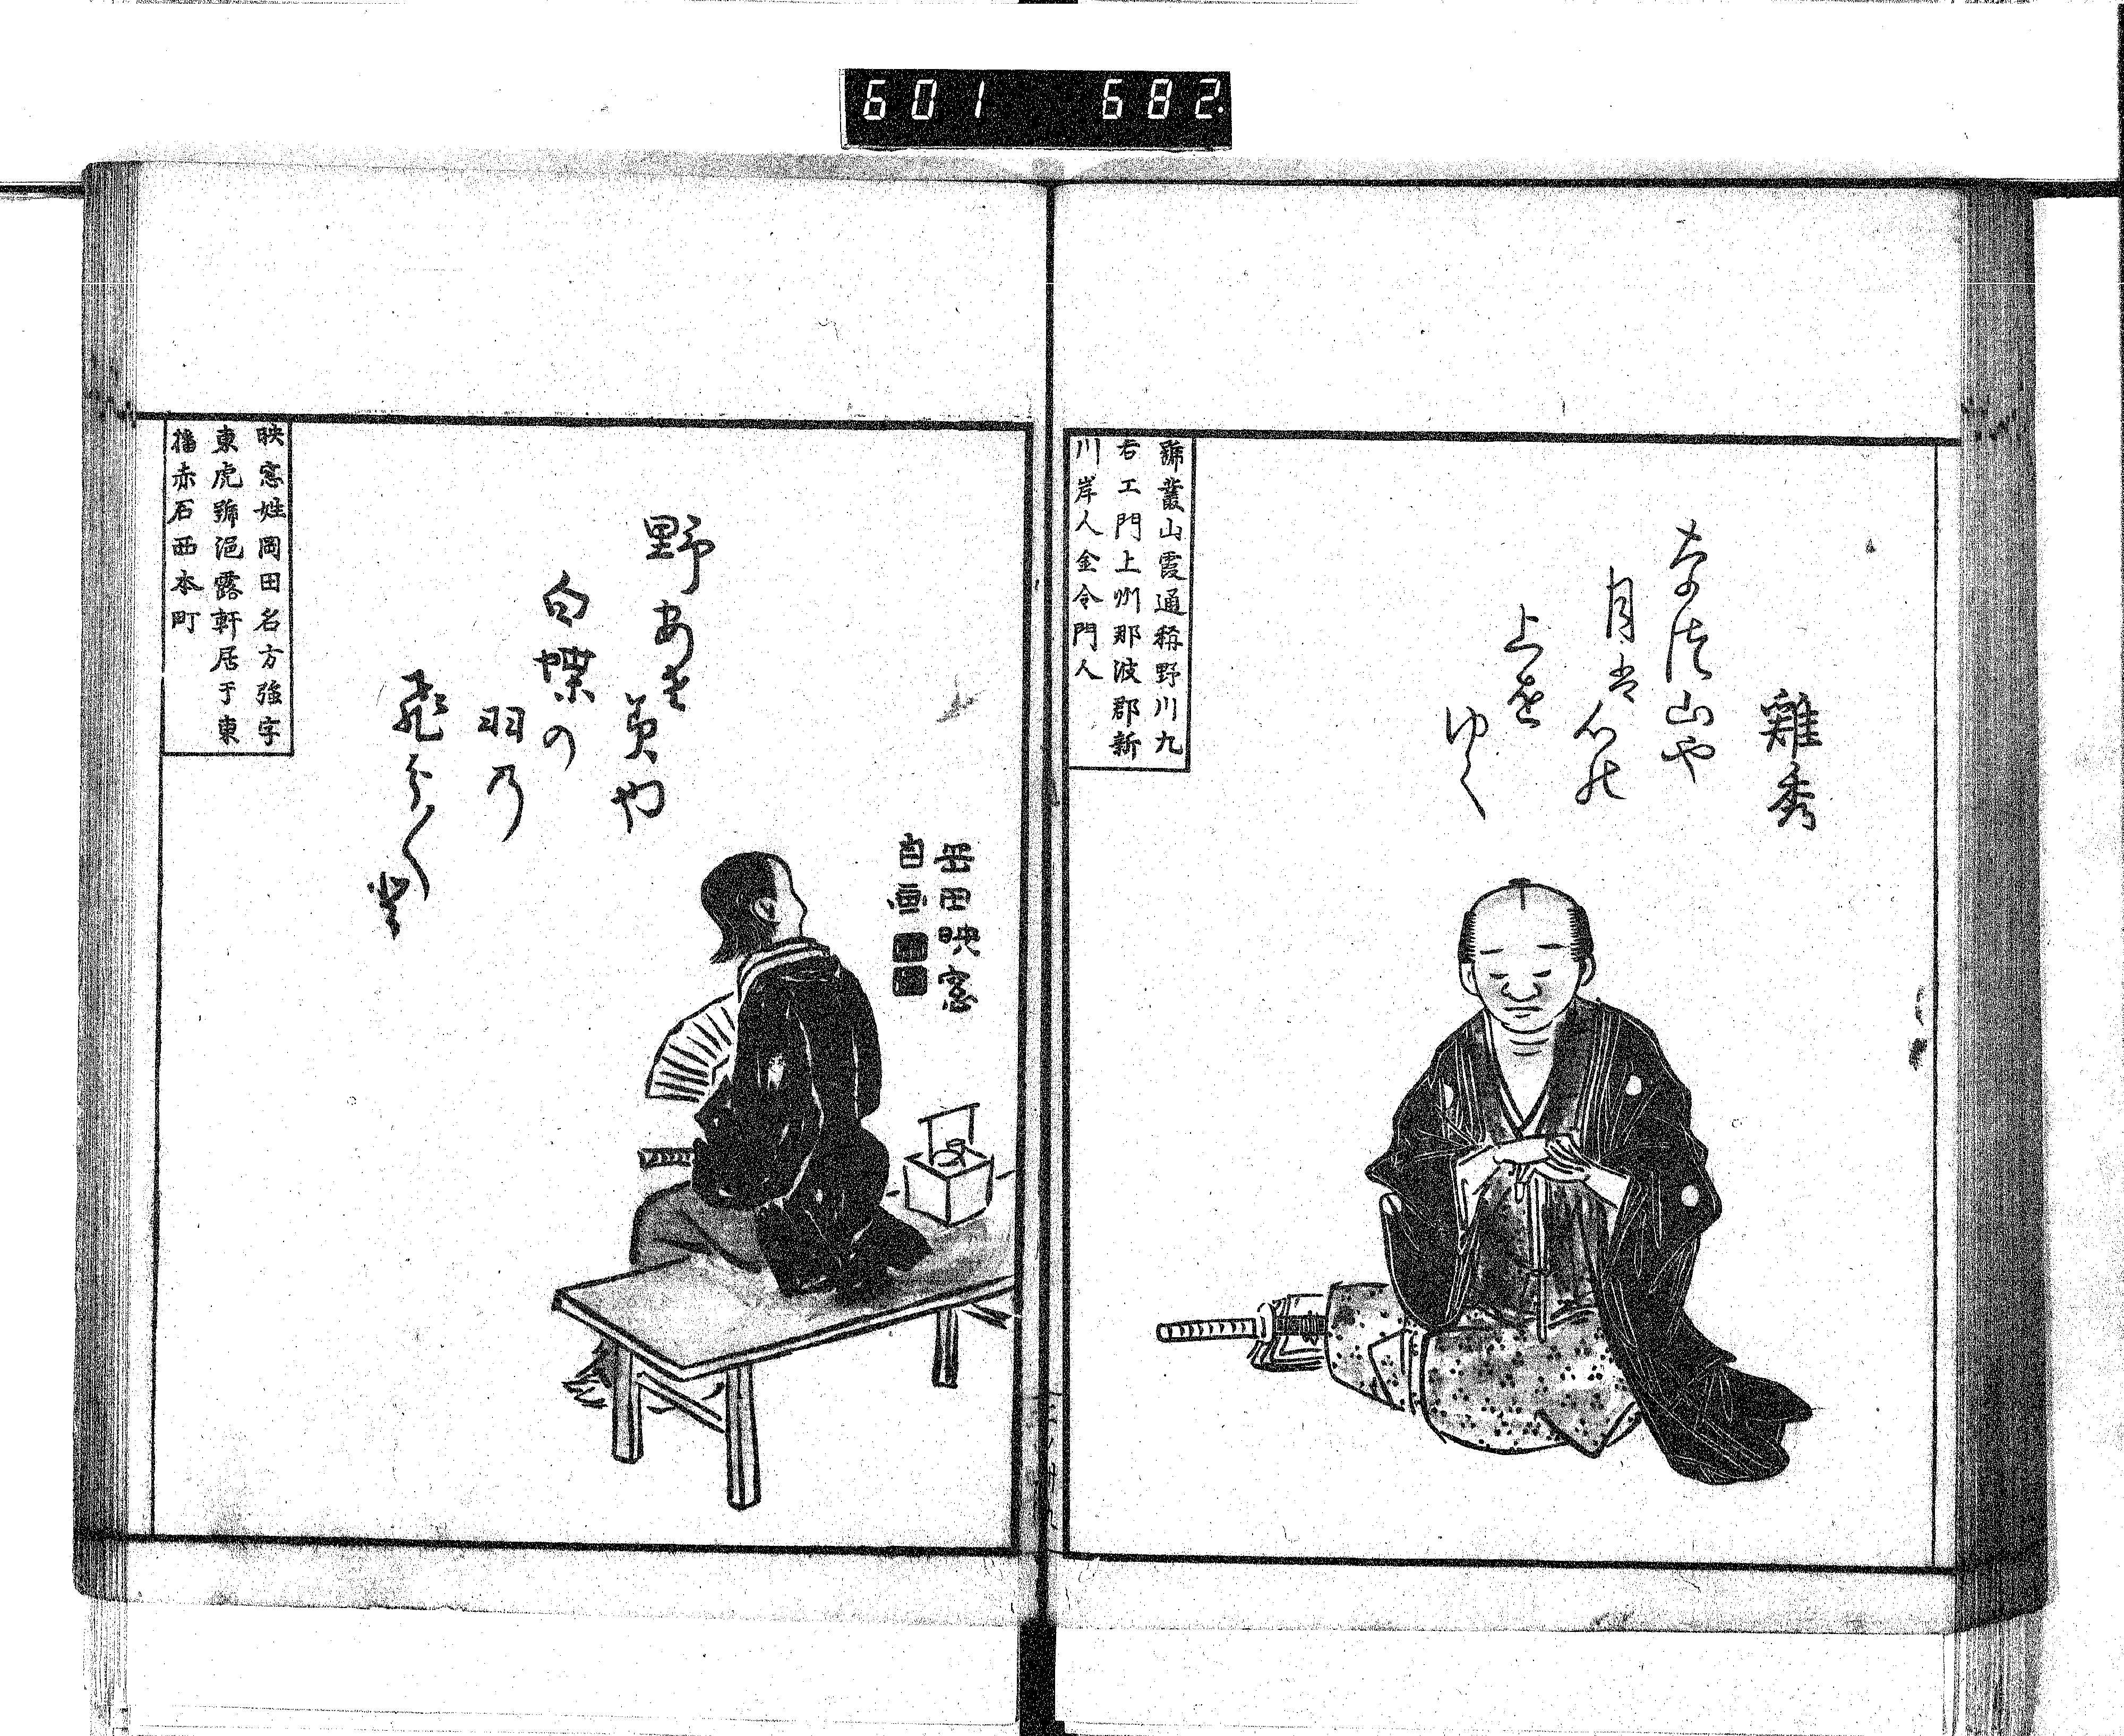 601 682
雞秀
なつ山や
月は人の
上を
ゆく
號叢山霞通稱野川九
右エ門上州那波郡新
川岸人金令門人
岳田映窓
自画
野あそ
美や
白蝶の
羽乃
飛らく
映窓姓岡田名方强字
東虎號浥露軒居于東
播赤石西本町